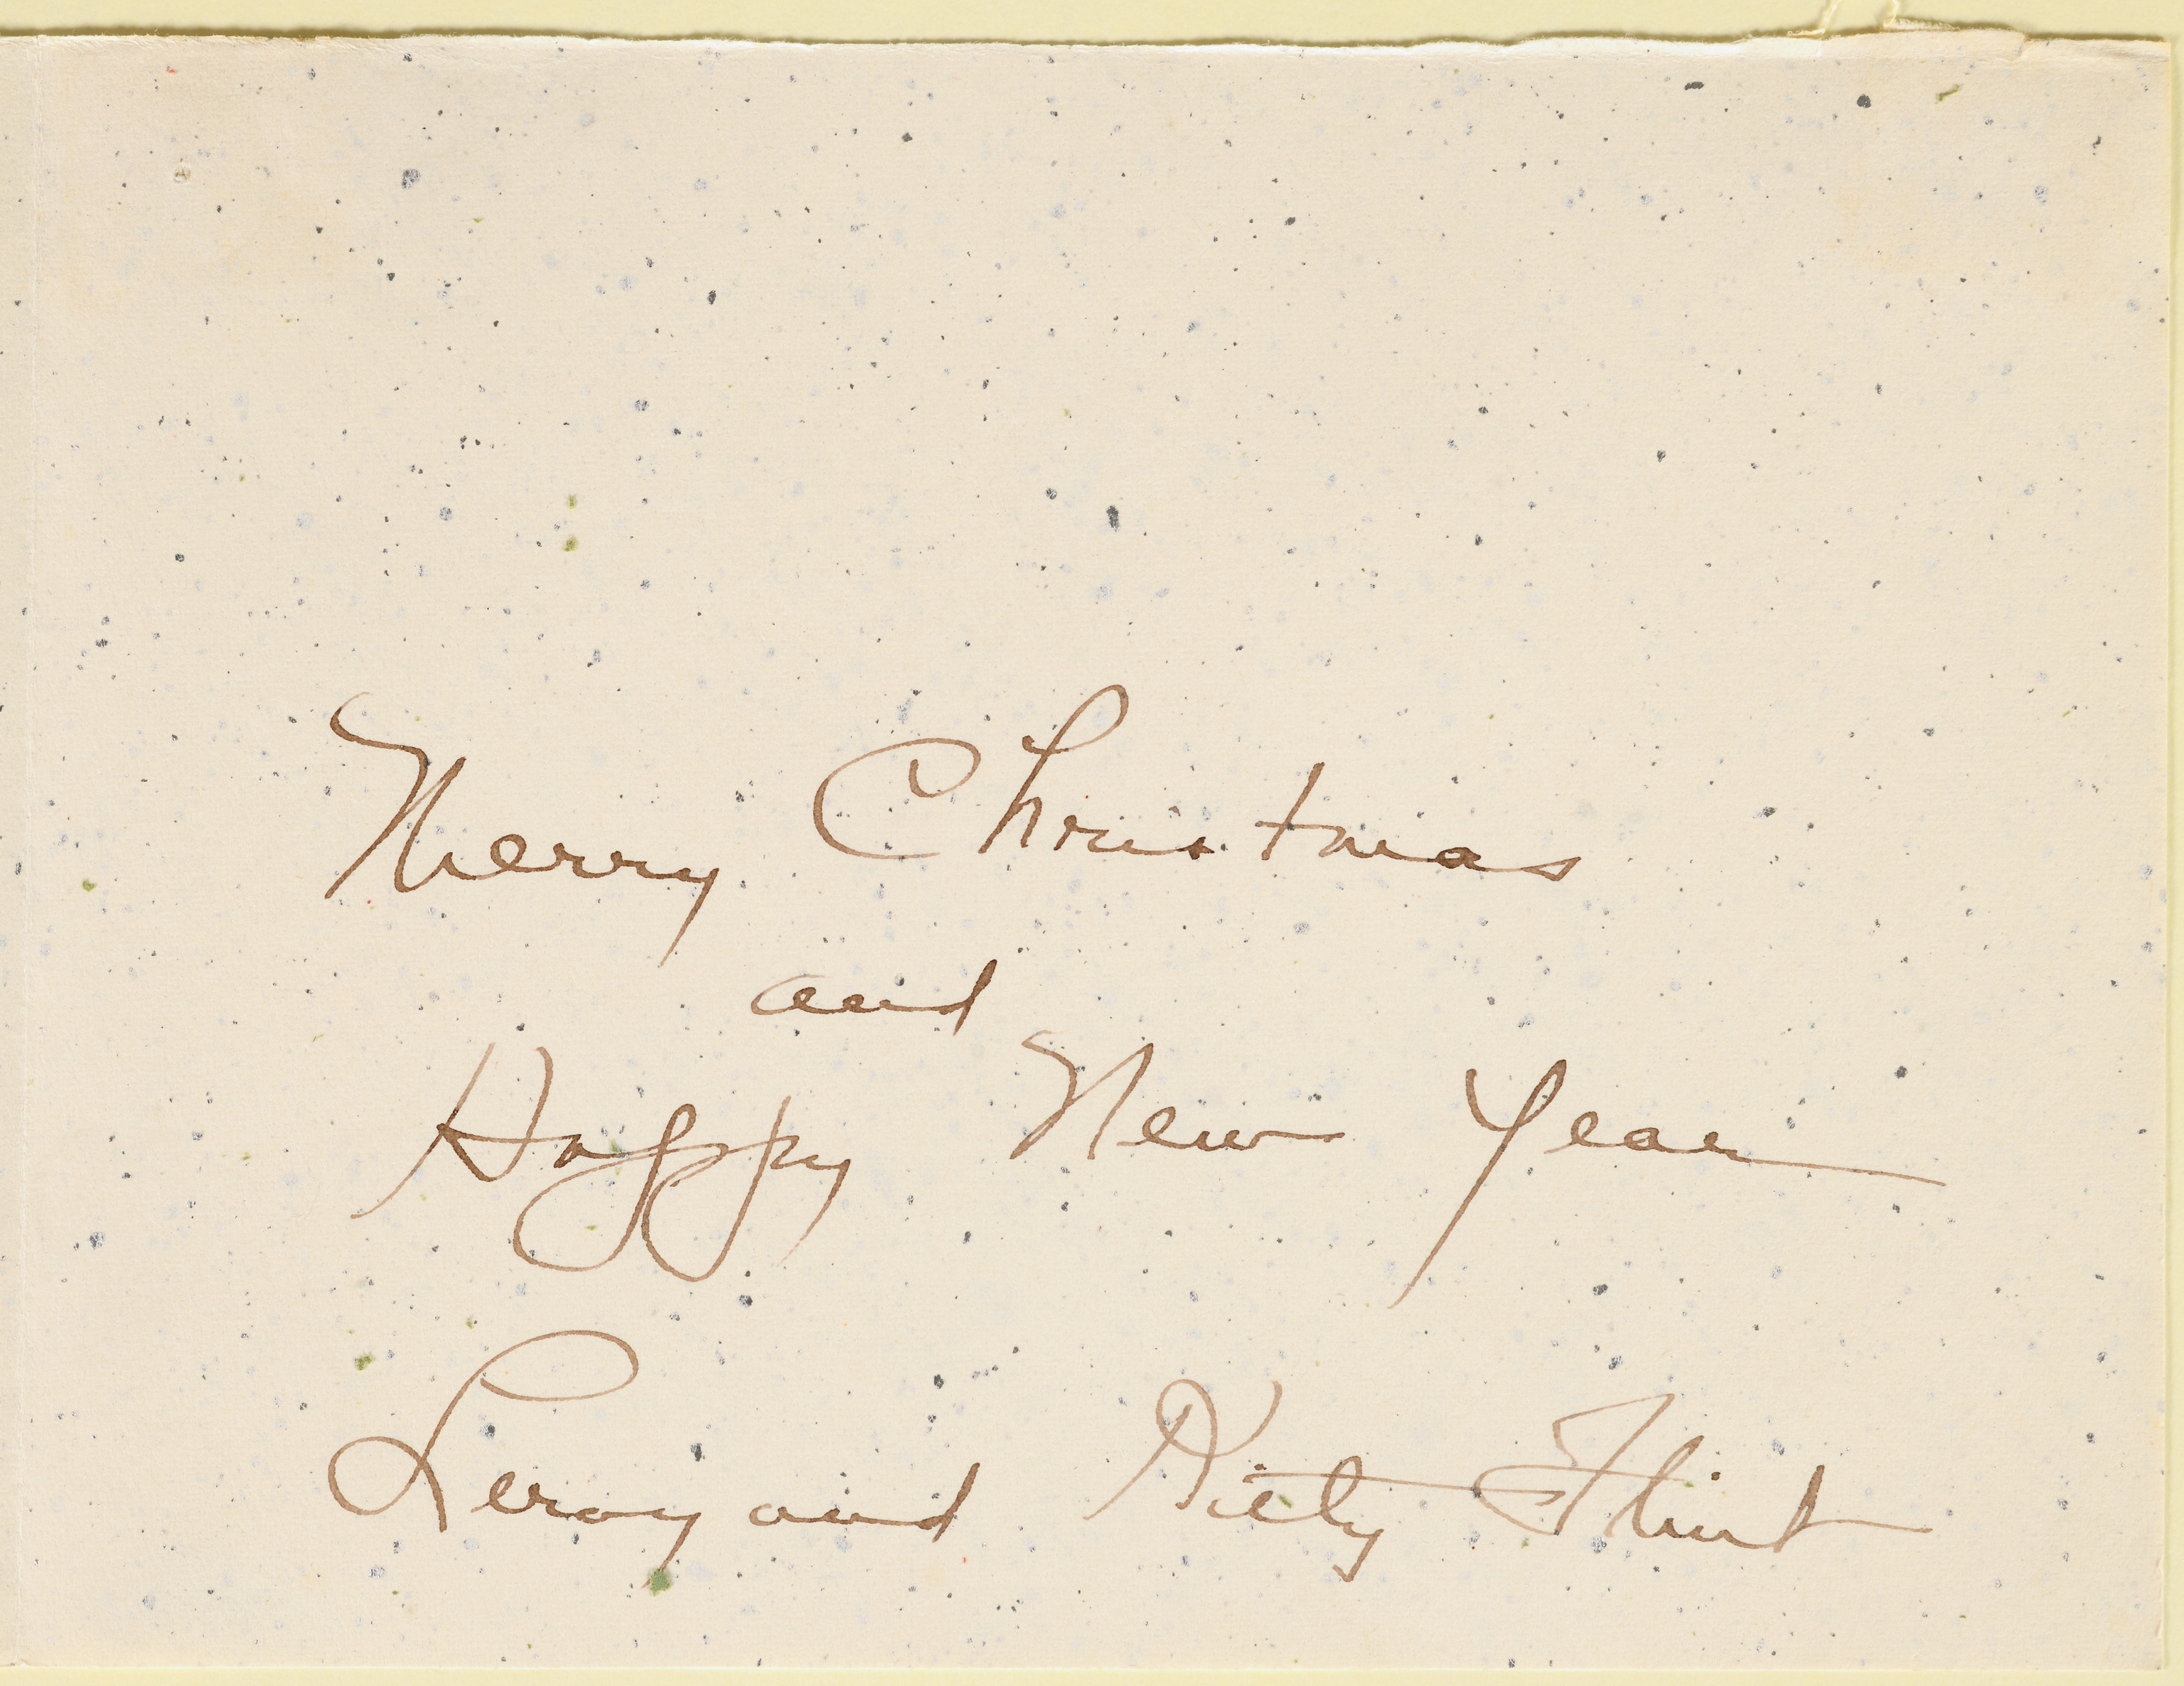 Merry Christmas
and
Happy New Year
Leroy and Flint